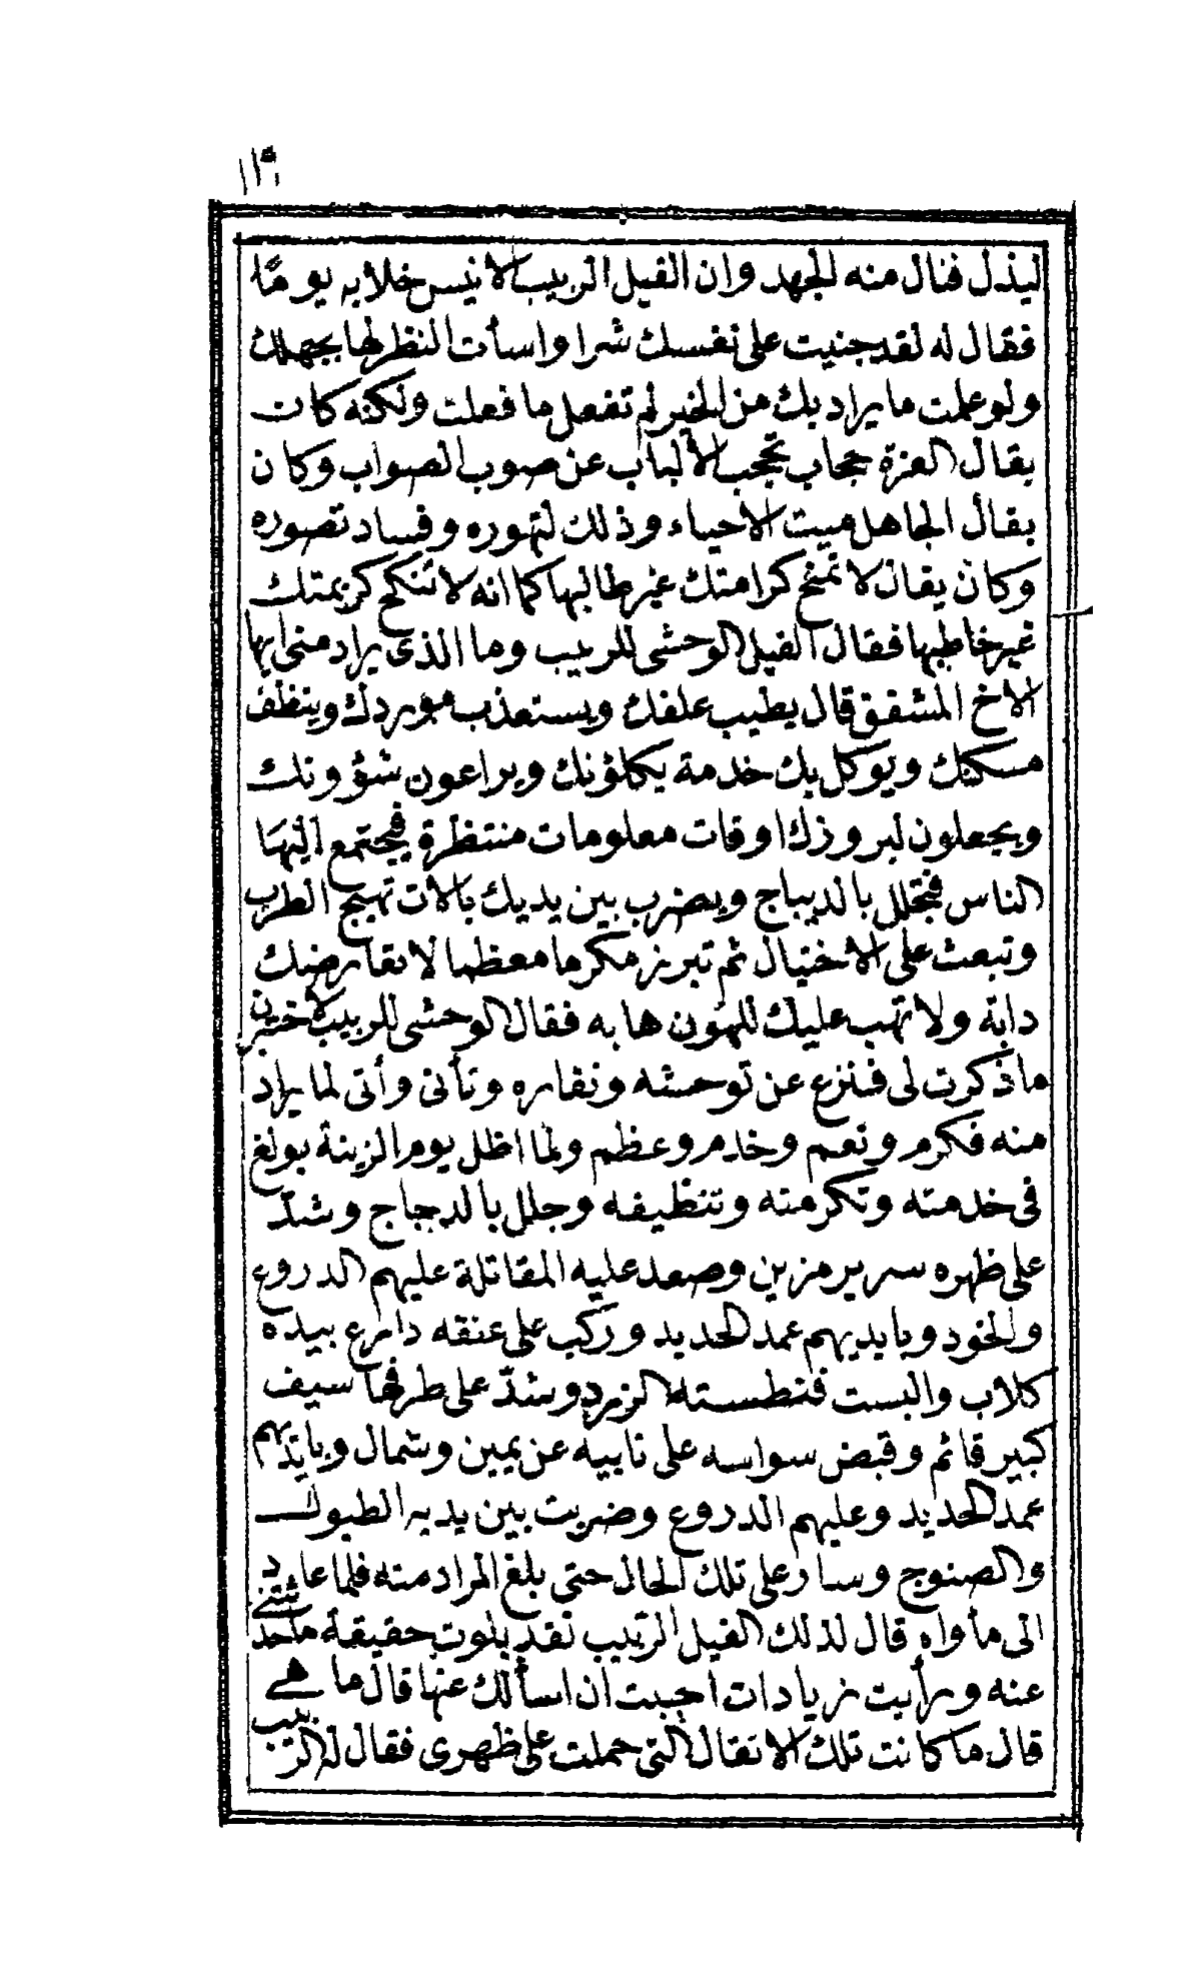 ليذل فنال منه الجهد وان الفيل الربيب الانيس خلابه يومًا
فقال له لقد جنيت على نفسك شرا واسأت النظر لها بجهلك
ولو علمت ما يراد بك من الخير لم تفعل ما فعلت ولكنه كان
يقال العزة حجاب تحجب الألباب عن صوب الصواب وكان
يقال الجاهل ميت الاحياء وذلك لتهوره وفساد تصوره
وكان يقال لا تمنح كرامتك غير طالبها كما انه لا تنكح كريمتك
غير خاطبها فقال الفيل الوحشى للربيب وما الذى يراد منى ايها
الاخ المشفق قال يطيب علفك ويستعذب موردك وينظف
مسكنك ويوكل بك خدمة يكلؤنك ويراعون شؤونك
ويجعلون لبروزك اوقات معلومات منتظرة فيجتمع اليها
الناس فتجلل بالديباج ويضرب بين يديك بالات تهيج الطرب
وتبعث على الاختيال ثم تبرز مكرما معظما لا تعارضك
دابة ولا تهب عليك للهون هابه فقال الوحشى للربيب لاختبرن
ماذكرت لى فنزع عن توحشه ونفاره وتأنى وأتى لما يراد
منه فكرم ونعم وخدم وعظم ولما اظل يوم الزينة بولغ
فى خدمته وتكرمته وتنظيفه وجلل بالدجاج وشدّ
على ظهره سرير مزين وصعد عليه المقاتلة عليهم الدروع
والخود وبايديهم عمد الحديد وركب على عنقه دارع بيده
كلاب والبست فنطسته الزرد وشدّ على طرفها سيف
كبير قائم وقبض سواسه على نابيه عن يمين وشمال وبايديهم
عمد الحديد وعليهم الدروع وضربت بين يديه الطبول
والصنوج وسار على تلك الحال حتى بلغ المراد منه فلما عاد
الى مأواه قال لذلك الفيل الربيب لقد بلوت حقيقة ما حدثتنى
عنه ورأيت زيادات احببت ان اسألك عنها قال ما هي
قال ما كانت تلك الاثقال التى حملت على ظهرى فقال له الربيب